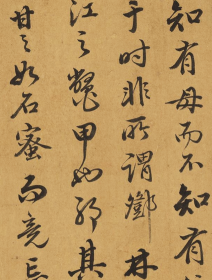 知有母而不知有
于時非所謂鄧林
江之鼈甲也邪其
甘之如石蜜而竟忘